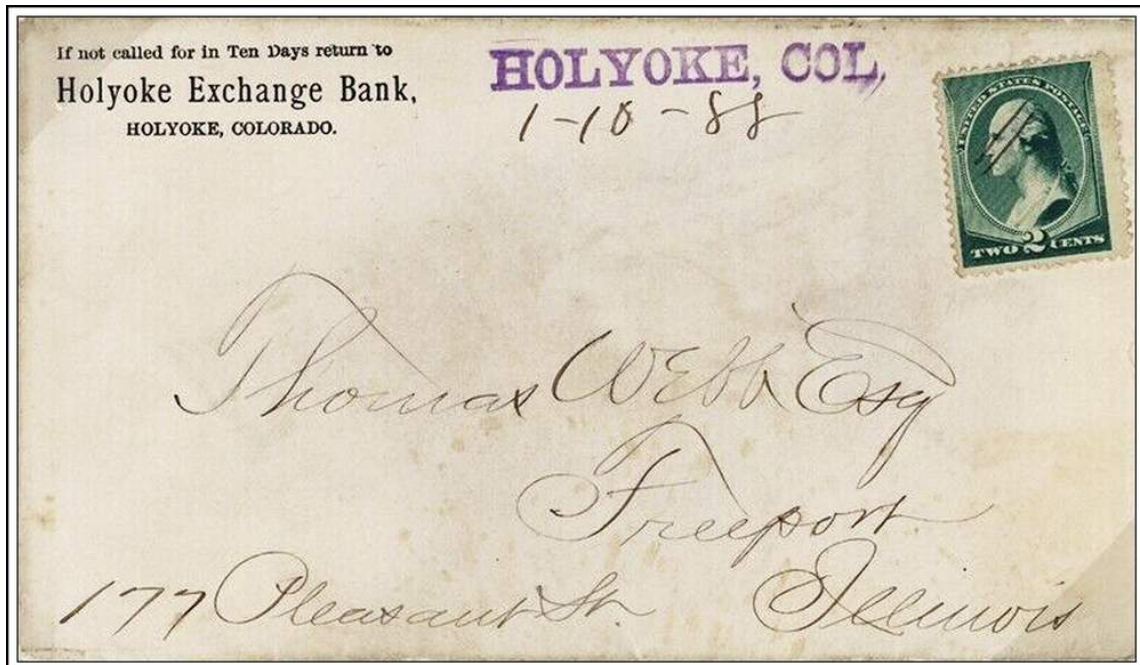 If not called for in Ten Days return to
Holyoke Exchange Bank,
HOLYOKE, COLORADO.
HOLYOKE, COL,
1-10-88
UNITED STATES POSTAGE
TWO 2 CENTS
Thomas Webb Esq
Freeport
Illinois
177 Pleasant St.